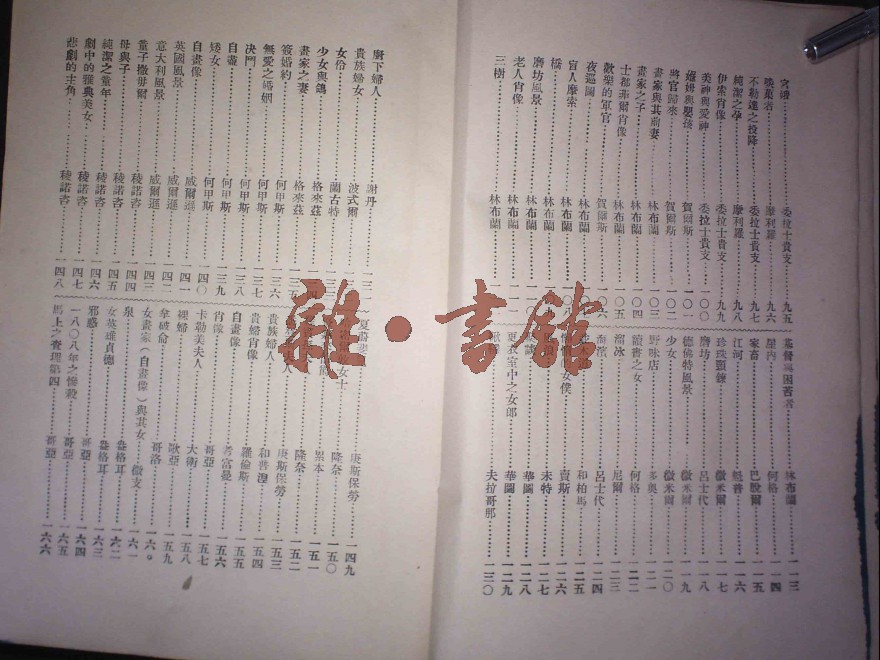 委拉士貴支 九五
啖菓者 摩利羅 九六
不勒達之投降 委拉士貴支 九七
純潔之孕 摩利羅 九八
伊索肖像 委拉士貴支 九九
美神與愛神 委拉士貴支 一〇〇
與嬰孩 賀爾斯 一〇一
將官歸來 賀爾斯 一〇二
畫家與其前妻 林布蘭 一〇三
畫家之子 林布蘭 一〇四
士都菲爾肖像 林布蘭 一〇五
歡樂的軍官 賀爾斯 一〇六
夜巡圖 林布蘭
盲人摩索 林布蘭
橋 林布蘭
磨坊風景 林布蘭
老人肖像 林布蘭
三樹 林布蘭
基督與困苦者 林布蘭 一一三
屋內 何格 一一四
家畜 巴脫爾 一一五
江河 魁普 一一六
珍珠頸鍊 微米爾 一一七
磨坊 呂士代 一一八
德佛特風景 微米爾 一一九
少女 微米爾 一二〇
野味店 多奧 一二一
讀書之女 何格 一二二
溜冰 尼爾 一二三
海濱 呂士代 一二四
和柏馬 一二五
女僕 賣斯 一二六
未特 一二七
華圖 一二八
更衣室中之女郎 華圖 一二九
夫拉哥那 一三〇
廚下婦人 謝丹 一三一
貴族婦女 波式爾
女俗 蘭古特
少女與鴿 格來茲
畫家之妻 格來茲
簽婚約 何甲斯 一三六
無愛之婚姻 何甲斯 一三七
決鬥 何甲斯 一三八
自盡 何甲斯 一三九
矮女 何甲斯 一四〇
自畫像 威爾遜 一四一
英國風景 威爾遜 一四二
意大利風景 威爾遜 一四三
童子撒母爾 稜諾咨 一四四
母與子 稜諾咨 一四五
純潔之童年 稜諾咨 一四六
劇中的雅典美女 稜諾咨 一四七
悲劇的主角 稜諾咨 一四八
康斯保勞 一四九
女士 隆奈 一五〇
一五一
夫人 隆奈 一五二
貴族婦人 康斯保勞 一五三
貴婦肖像 和普涅 一五四
自畫像 羅倫斯 一五五
肖像 考富曼 一五六
卡勒美夫人 哥亞 一五七
裸婦 大衛 一五八
拿破侖 歌亞 一五九
女畫家(自畫像)與其女 微支 一六一
泉 盎格耳 一六二
女英雄貞德 盎格耳 一六三
邪惑 哥亞 一六四
一八〇八年之慘殺 哥亞 一六五
馬上之查理第四 哥亞 一六六
雜·書館